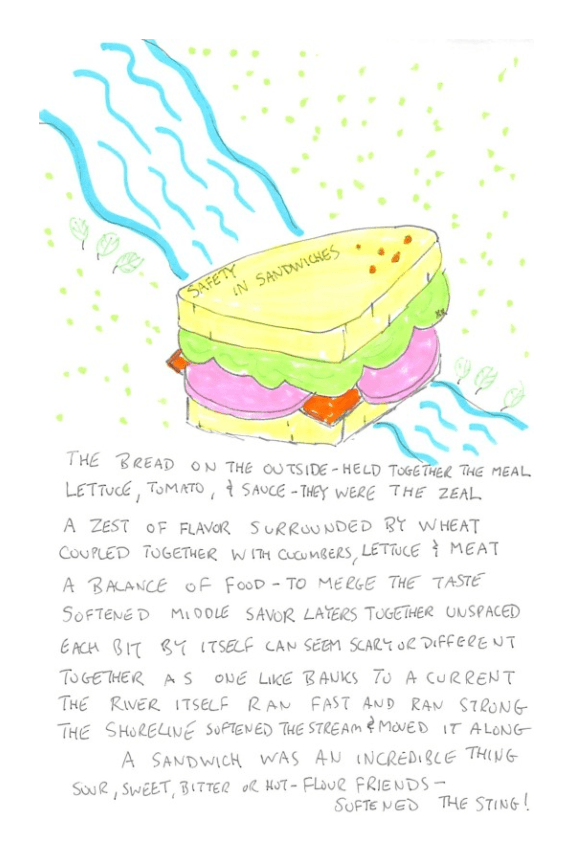 SAFETY
IN SANDWICHES
THE BREAD ON THE OUTSIDE-HELD TOGETHER THE MEAL
LETTUCE, TOMATO, & SAUCE-THEY WERE THE ZEAL
A ZEST OF FLAVOR SURROUNDED BY WHEAT
COUPLED TOGETHER WITH CUCUMBERS, LETTUCE & MEAT
A BALANCE OF FOOD-TO MERGE THE TASTE
SOFTENED MIDDLE SAVOR LAYERS TOGETHER UNSPACED
EACH BIT BY ITSELF CAN SEEM SCARY OR DIFFERENT
TOGETHER AS ONE LIKE BANKS TO A CURRENT
THE RIVER ITSELF RAN FAST AND RAN STRONG
THE SHORELINE SOFTENED THE STREAM & MOVED IT ALONG
A SANDWICH WAS AN INCREDIBLE THING
SOUR, SWEET, BITTER OR HOT-FLOUR FRIENDS-
SOFTENED THE STING!